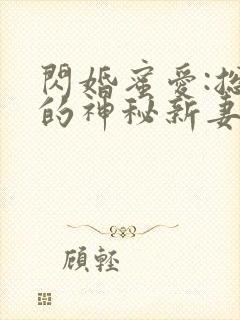 閃婚蜜愛:總
的神秘新妻
顧輕